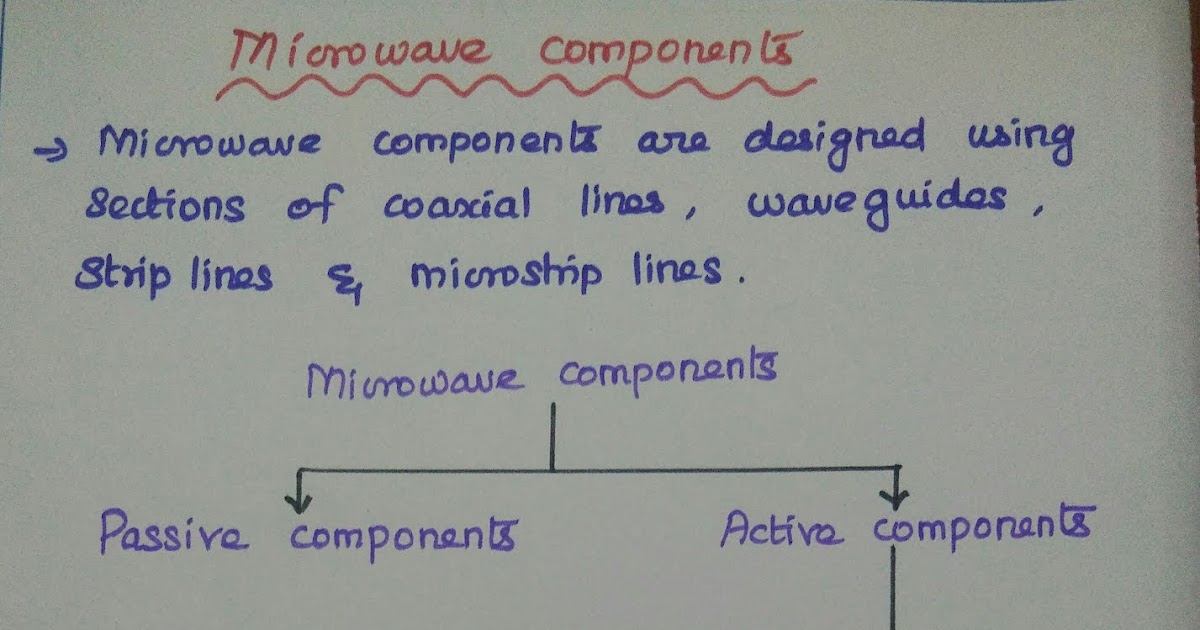 Microwave components
→ Microwave components are designed using
Sections of coaxial lines, waveguides,
Strip lines & microstrip lines.
Microwave components
Passive components Active components